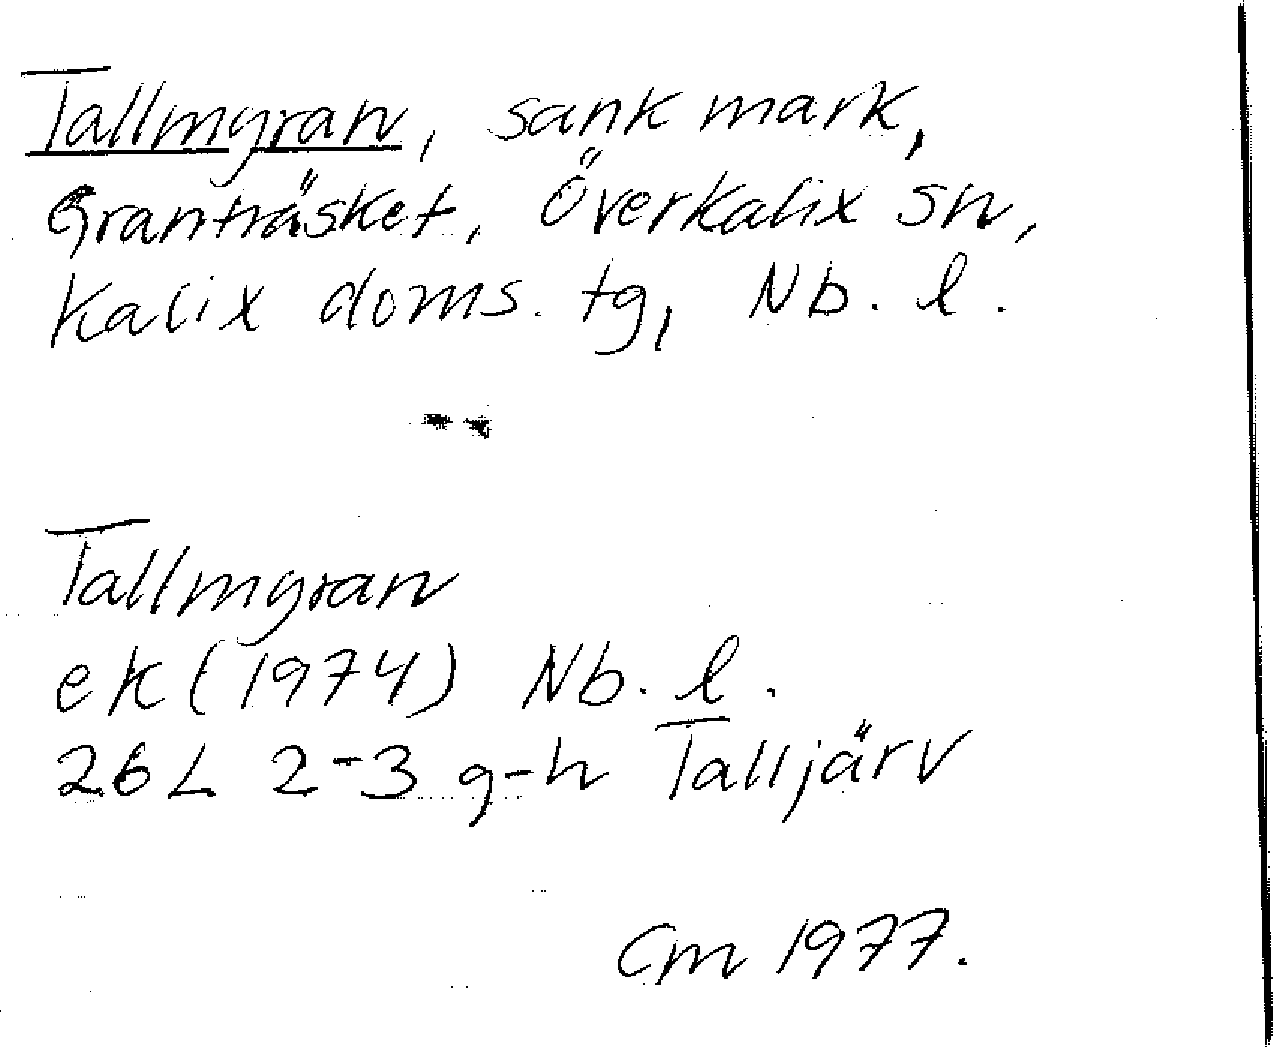 Tallmyran, sank mark,
Granträsket, Överkalix sn,
Kalix doms. tg, Nb. l.
Tallmyran
ek (1974) Nb. l.
26 L 2-3 g-h Talljärv
Cm 1977.